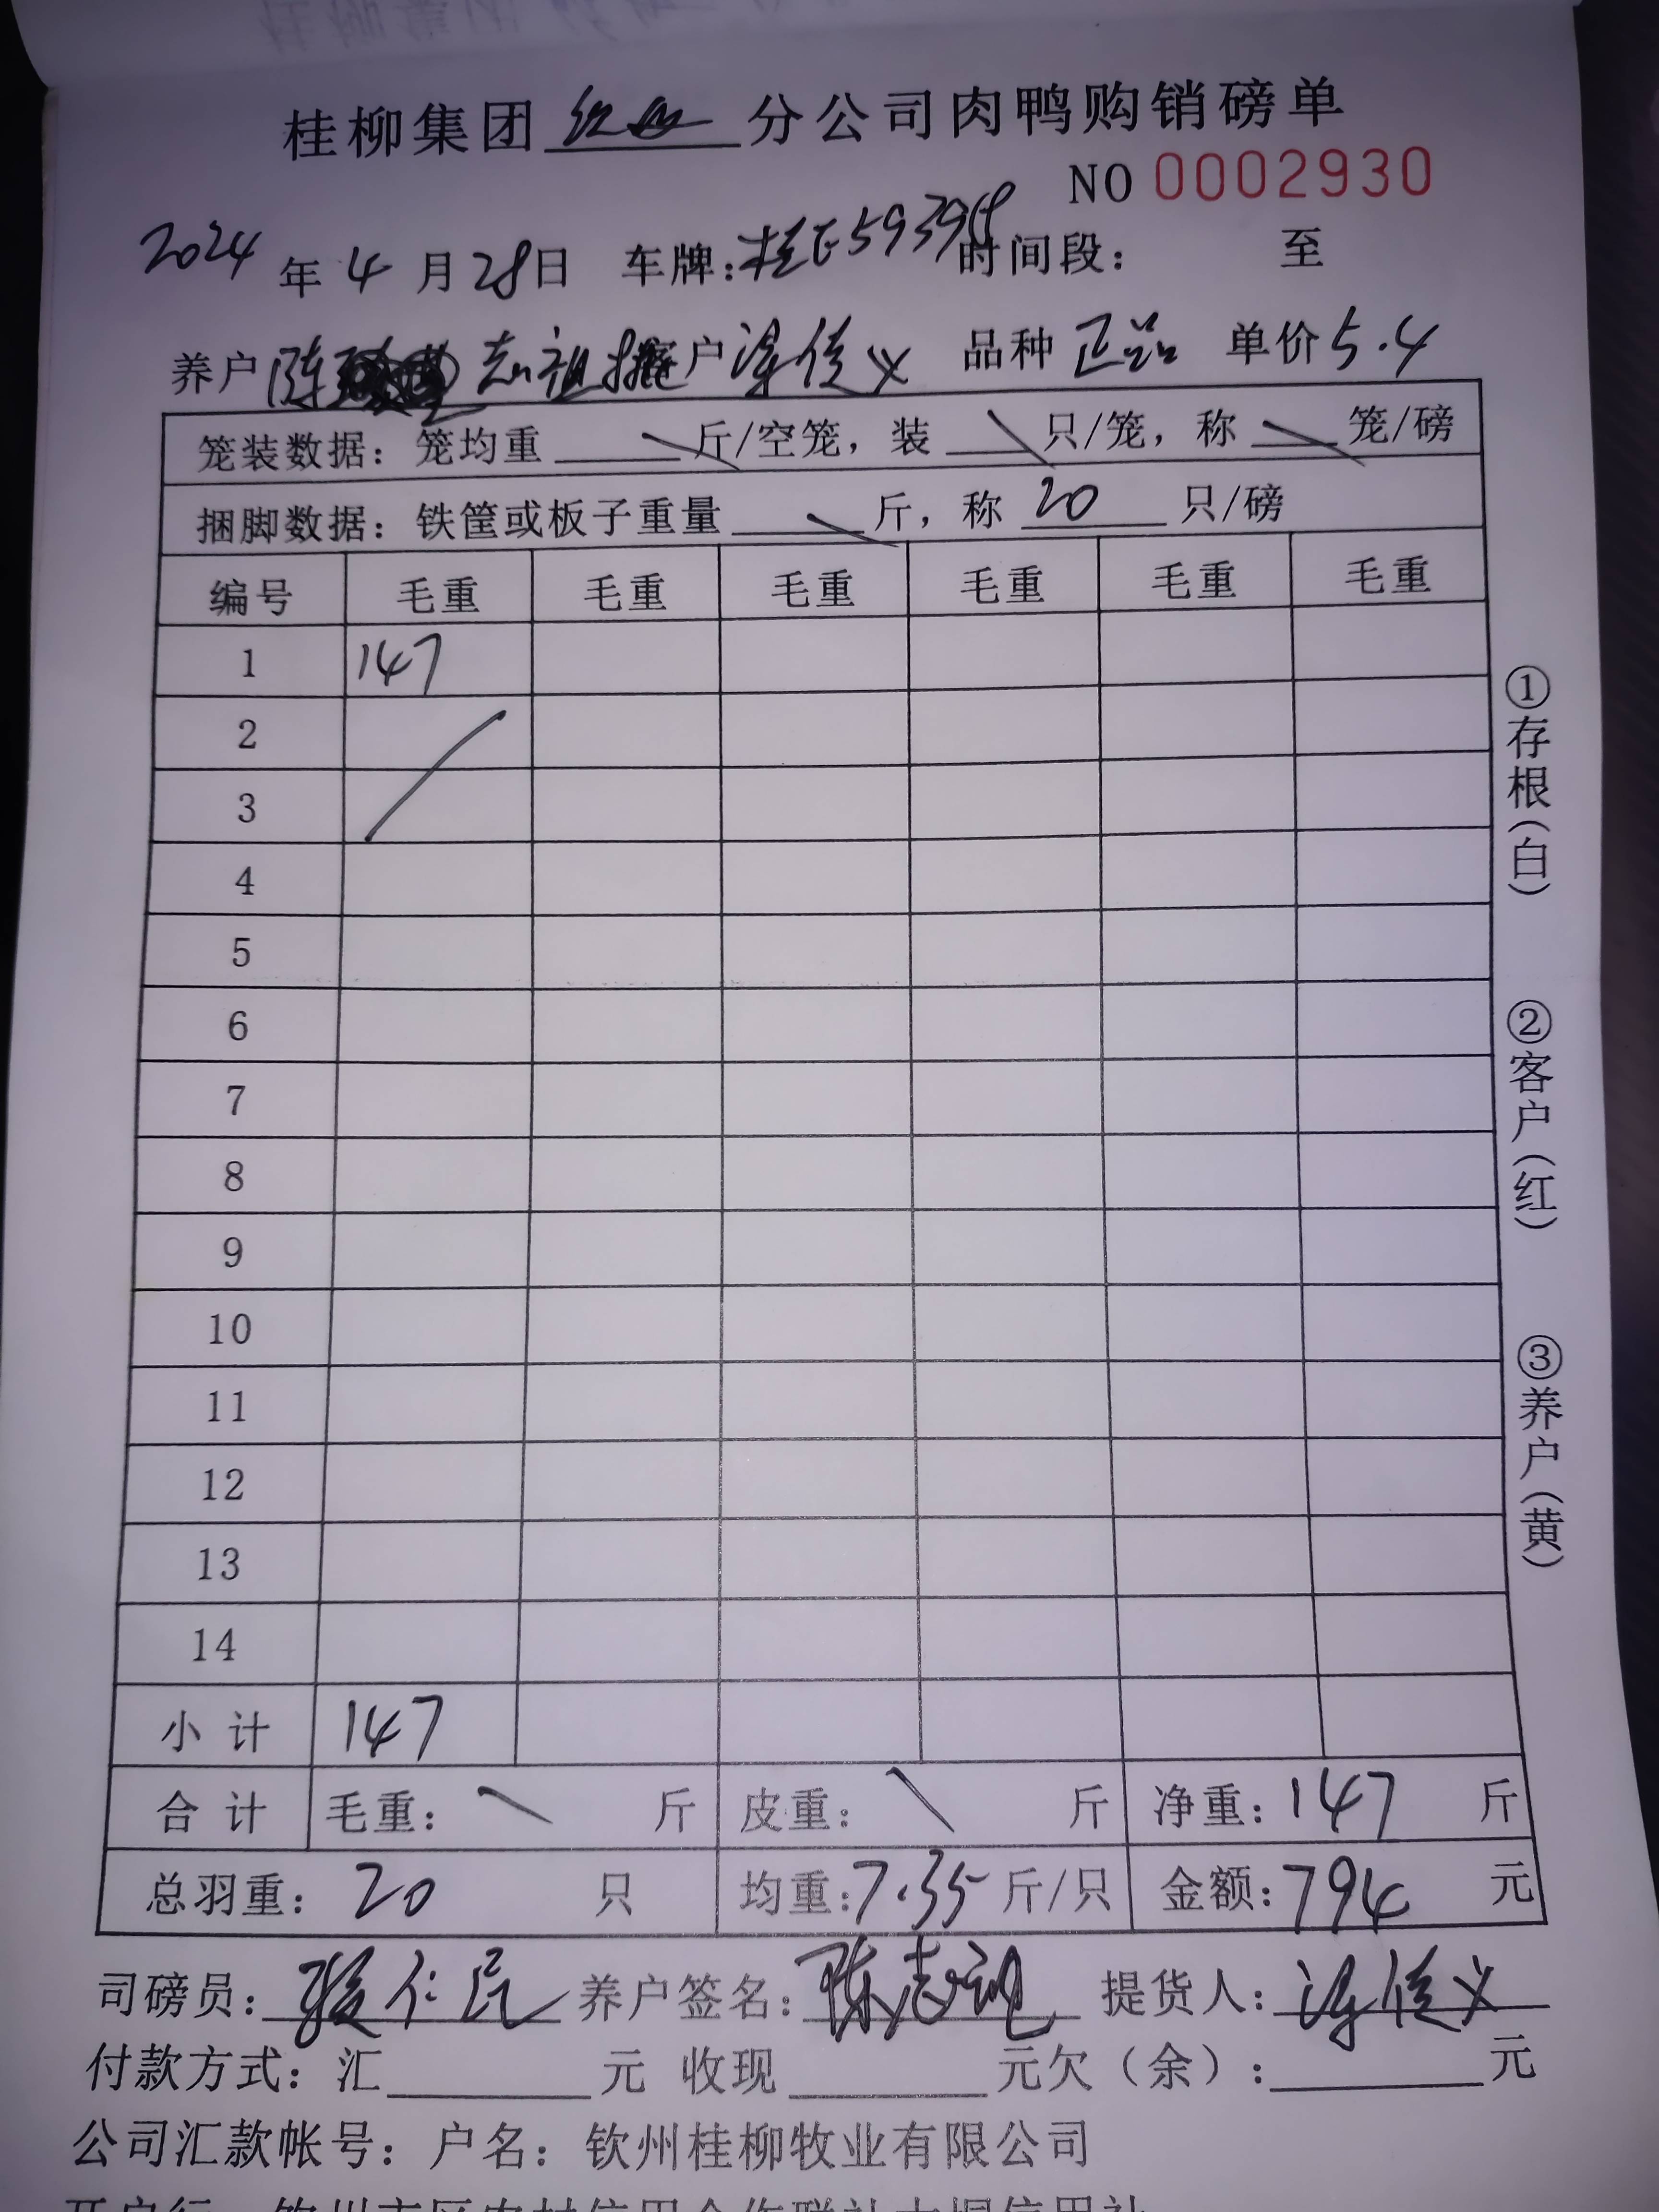 桂柳集团 分公司肉鸭购销磅单
NO 0002930
2024年4月28日 车牌:桂E59398 时间段: 至
养户 陈志祖 户 品种 正品 单价 5.4
笼装数据: 笼均重 斤/空笼, 装 只/笼, 称 笼/磅
捆脚数据: 铁筐或板子重量 斤, 称 20 只/磅
编号 毛重 毛重 毛重 毛重 毛重 毛重
1 147
2
3
4
5
6
7
8
9
10
11
12
13
14
小计 147
合计 毛重: 斤 皮重: 斤 净重: 147 斤
总羽重: 20 只 均重: 7.35 斤/只 金额: 794 元
司磅员: 仁民 养户签名: 陈志祖 提货人:
付款方式: 汇 元 收现 元欠(余): 元
公司汇款帐号: 户名: 钦州桂柳牧业有限公司
①存根(白)
②客户(红)
③养户(黄)